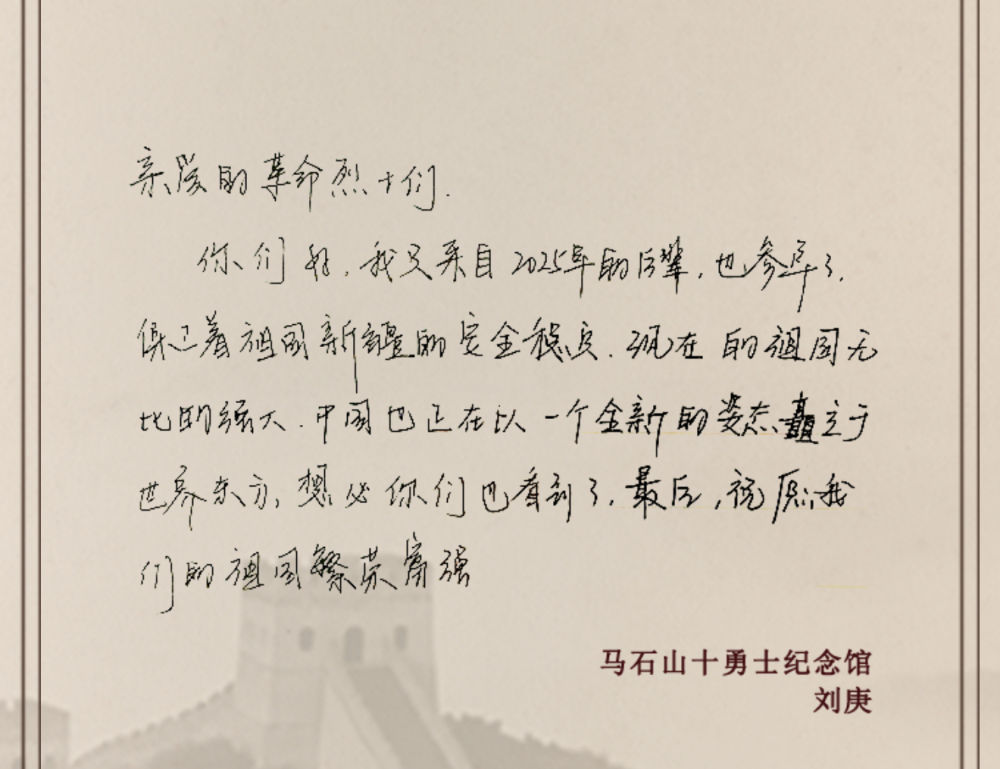 亲爱的革命烈士们.
你们好,我是来自2025年的后辈,也参军了,
保卫着祖国新疆的安全稳定.现在的祖国无
比的强大.中国也正在以一个全新的姿态矗立于
世界东方,想必你们也看到了.最后,祝愿我
们的祖国繁荣富强
马石山十勇士纪念馆
刘庚